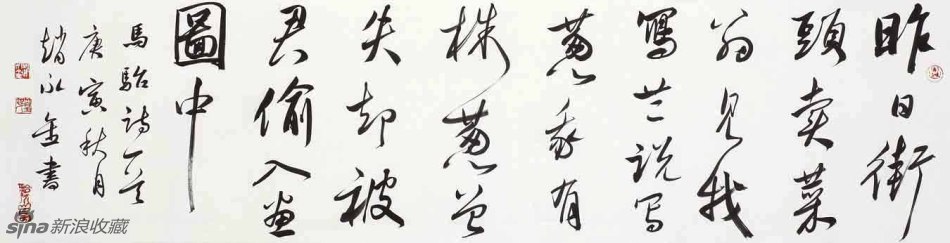 昨日街
頭賣菜
翁見我
寫兰說写
蔥我有
株蔥曾
失却被
君偷入畫
圖中
馬駘詩一首
庚寅秋月
趙永金書
sina新浪收藏